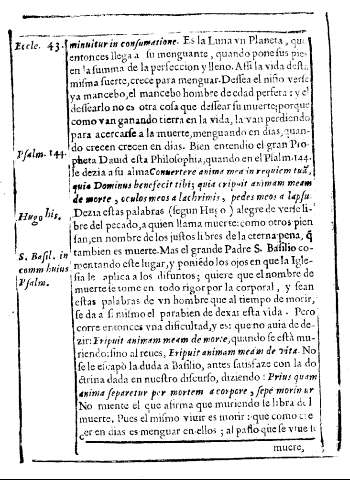 Eccle. 43.
minuitur in consumatione. Es la Luna vn Planeta, que
entonces llega a su menguante, quando pone sus pies
en la summa de la perfeccion y lleno. Assi la vida desta
misma suerte, crece para menguar. Dessea el niño verse
ya mancebo, el mancebo hombre de edad perfeta: y el
dessearlo no es otra cosa que dessear su muerte; porque
como van ganando tierra en la vida, la van perdiendo
para acercarse a la muerte, menguando en dias, quan-
do crecen crecen en dias. Bien entendio el gran Pro-
Psalm. 144.
pheta Dauid esta Philosophia, quando en el Psalm. 144.
le dezia a su alma Conuertere anima mea in requiem tuã,
quia Dominus benefecit tibi; quia eripuit animam meam
de morte, oculos meos a lachrimis, pedes meos a lapsu.
Hugo his.
Dezia estas palabras (segun Hugo) alegre de verse li-
bre del pecado, a quien llama muerte: como otros pien-
san, en nombre de los justos libres de la eterna pena, q̃
S. Basil. in
comm huius
Psalm.
tambien es muerte. Mas el grande Padre S. Basilio co-
mentando este lugar, y poniẽdo los ojos en que la Igle-
sia le aplica a los difuntos; quiere que el nombre de
muerte se tome en todo rigor por la corporal, y sean
estas palabras de vn hombre que al tiempo de morir,
se da a si mismo el parabien de dexar esta vida. Pero
corre entonces vna dificultad, y es: que no auia de de-
zir: Eripuit animam meam de morte, quando se està mu-
riendo: sino al reues, Eripuit animam meam de vita. No
se le escapò la duda a Basilio, antes satisfaze con la do
ctrina dada en nuestro discurso, diziendo: Prius quam
anima separetur per mortem a corpore, sepè morimur
No miente el que afirma que muriendo le libra de l
muerte. Pues el mismo viuir es morir: que como cre
cer en dias es menguar en ellos; al passo que se viue se
muere,